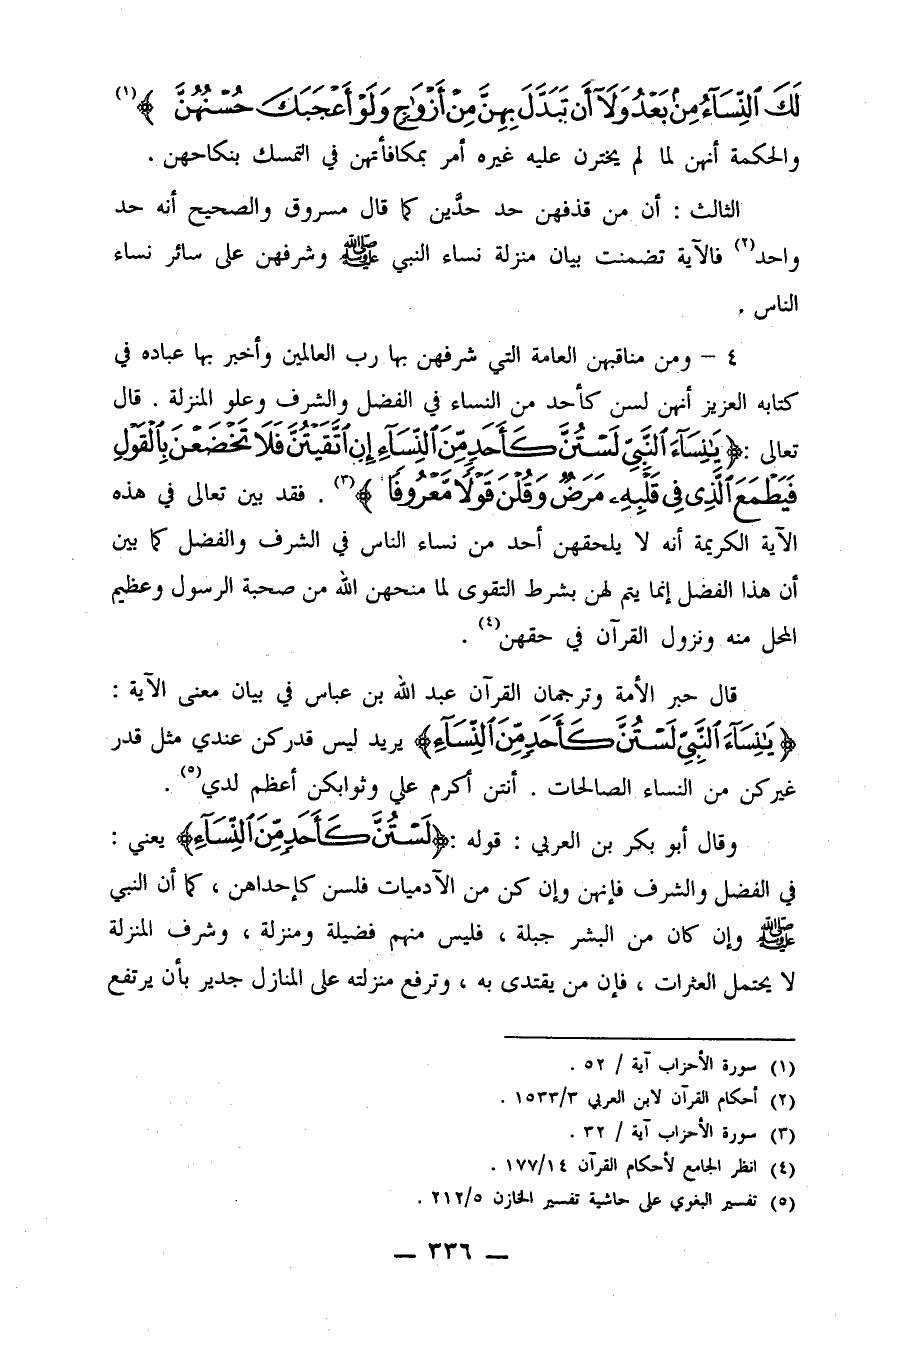 لَكَ ٱلنِّسَآءُ مِنۢ بَعْدُ وَلَآ أَن تَبَدَّلَ بِهِنَّ مِنْ أَزْوَٰجٍ وَلَوْ أَعْجَبَكَ حُسْنُهُنَّ ﴾(١)
والحكمة أنهن لما لم يخترن عليه غيره أمر بمكافأتهن في التمسك بنكاحهن .
الثالث : أن من قذفهن حد حدَّين كما قال مسروق والصحيح أنه حد
واحد(٢) فالآية تضمنت بيان منزلة نساء النبي ﷺ وشرفهن على سائر نساء
الناس .
٤ – ومن مناقبهن العامة التي شرفهن بها رب العالمين وأخبر بها عباده في
كتابه العزيز أنهن لسن كأحد من النساء في الفضل والشرف وعلو المنزلة . قال
تعالى :﴿ يَٰنِسَآءَ ٱلنَّبِيِّ لَسْتُنَّ كَأَحَدٍ مِّنَ ٱلنِّسَآءِ إِنِ ٱتَّقَيْتُنَّ فَلَا تَخْضَعْنَ بِٱلْقَوْلِ
فَيَطْمَعَ ٱلَّذِى فِى قَلْبِهِۦ مَرَضٌ وَقُلْنَ قَوْلًا مَّعْرُوفًا ﴾(٣) . فقد بين تعالى في هذه
الآية الكريمة أنه لا يلحقهن أحد من نساء الناس في الشرف والفضل كما بين
أن هذا الفضل إنما يتم لهن بشرط التقوى لما منحهن الله من صحبة الرسول وعظيم
المحل منه ونزول القرآن في حقهن(٤) .
قال حبر الأمة وترجمان القرآن عبد الله بن عباس في بيان معنى الآية :
﴿ يَٰنِسَآءَ ٱلنَّبِيِّ لَسْتُنَّ كَأَحَدٍ مِّنَ ٱلنِّسَآءِ ﴾ يريد ليس قدركن عندي مثل قدر
غيركن من النساء الصالحات . أنتن أكرم علي وثوابكن أعظم لدي(٥) .
وقال أبو بكر بن العربي : قوله :﴿ لَسْتُنَّ كَأَحَدٍ مِّنَ ٱلنِّسَآءِ ﴾ يعني :
في الفضل والشرف فإنهن وإن كن من الآدميات فلسن كإحداهن ، كما أن النبي
ﷺ وإن كان من البشر جبلة ، فليس منهم فضيلة ومنزلة ، وشرف المنزلة
لا يحتمل العثرات ، فإن من يقتدى به ، وترفع منزلته على المنازل جدير بأن يرتفع
(١) سورة الأحزاب آية / ٥٢ .
(٢) أحكام القرآن لابن العربي ١٥٣٣/٣ .
(٣) سورة الأحزاب آية / ٣٢ .
(٤) انظر الجامع لأحكام القرآن ١٧٧/١٤ .
(٥) تفسير البغوي على حاشية تفسير الخازن ٢١٢/٥ .
— ٣٣٦ —